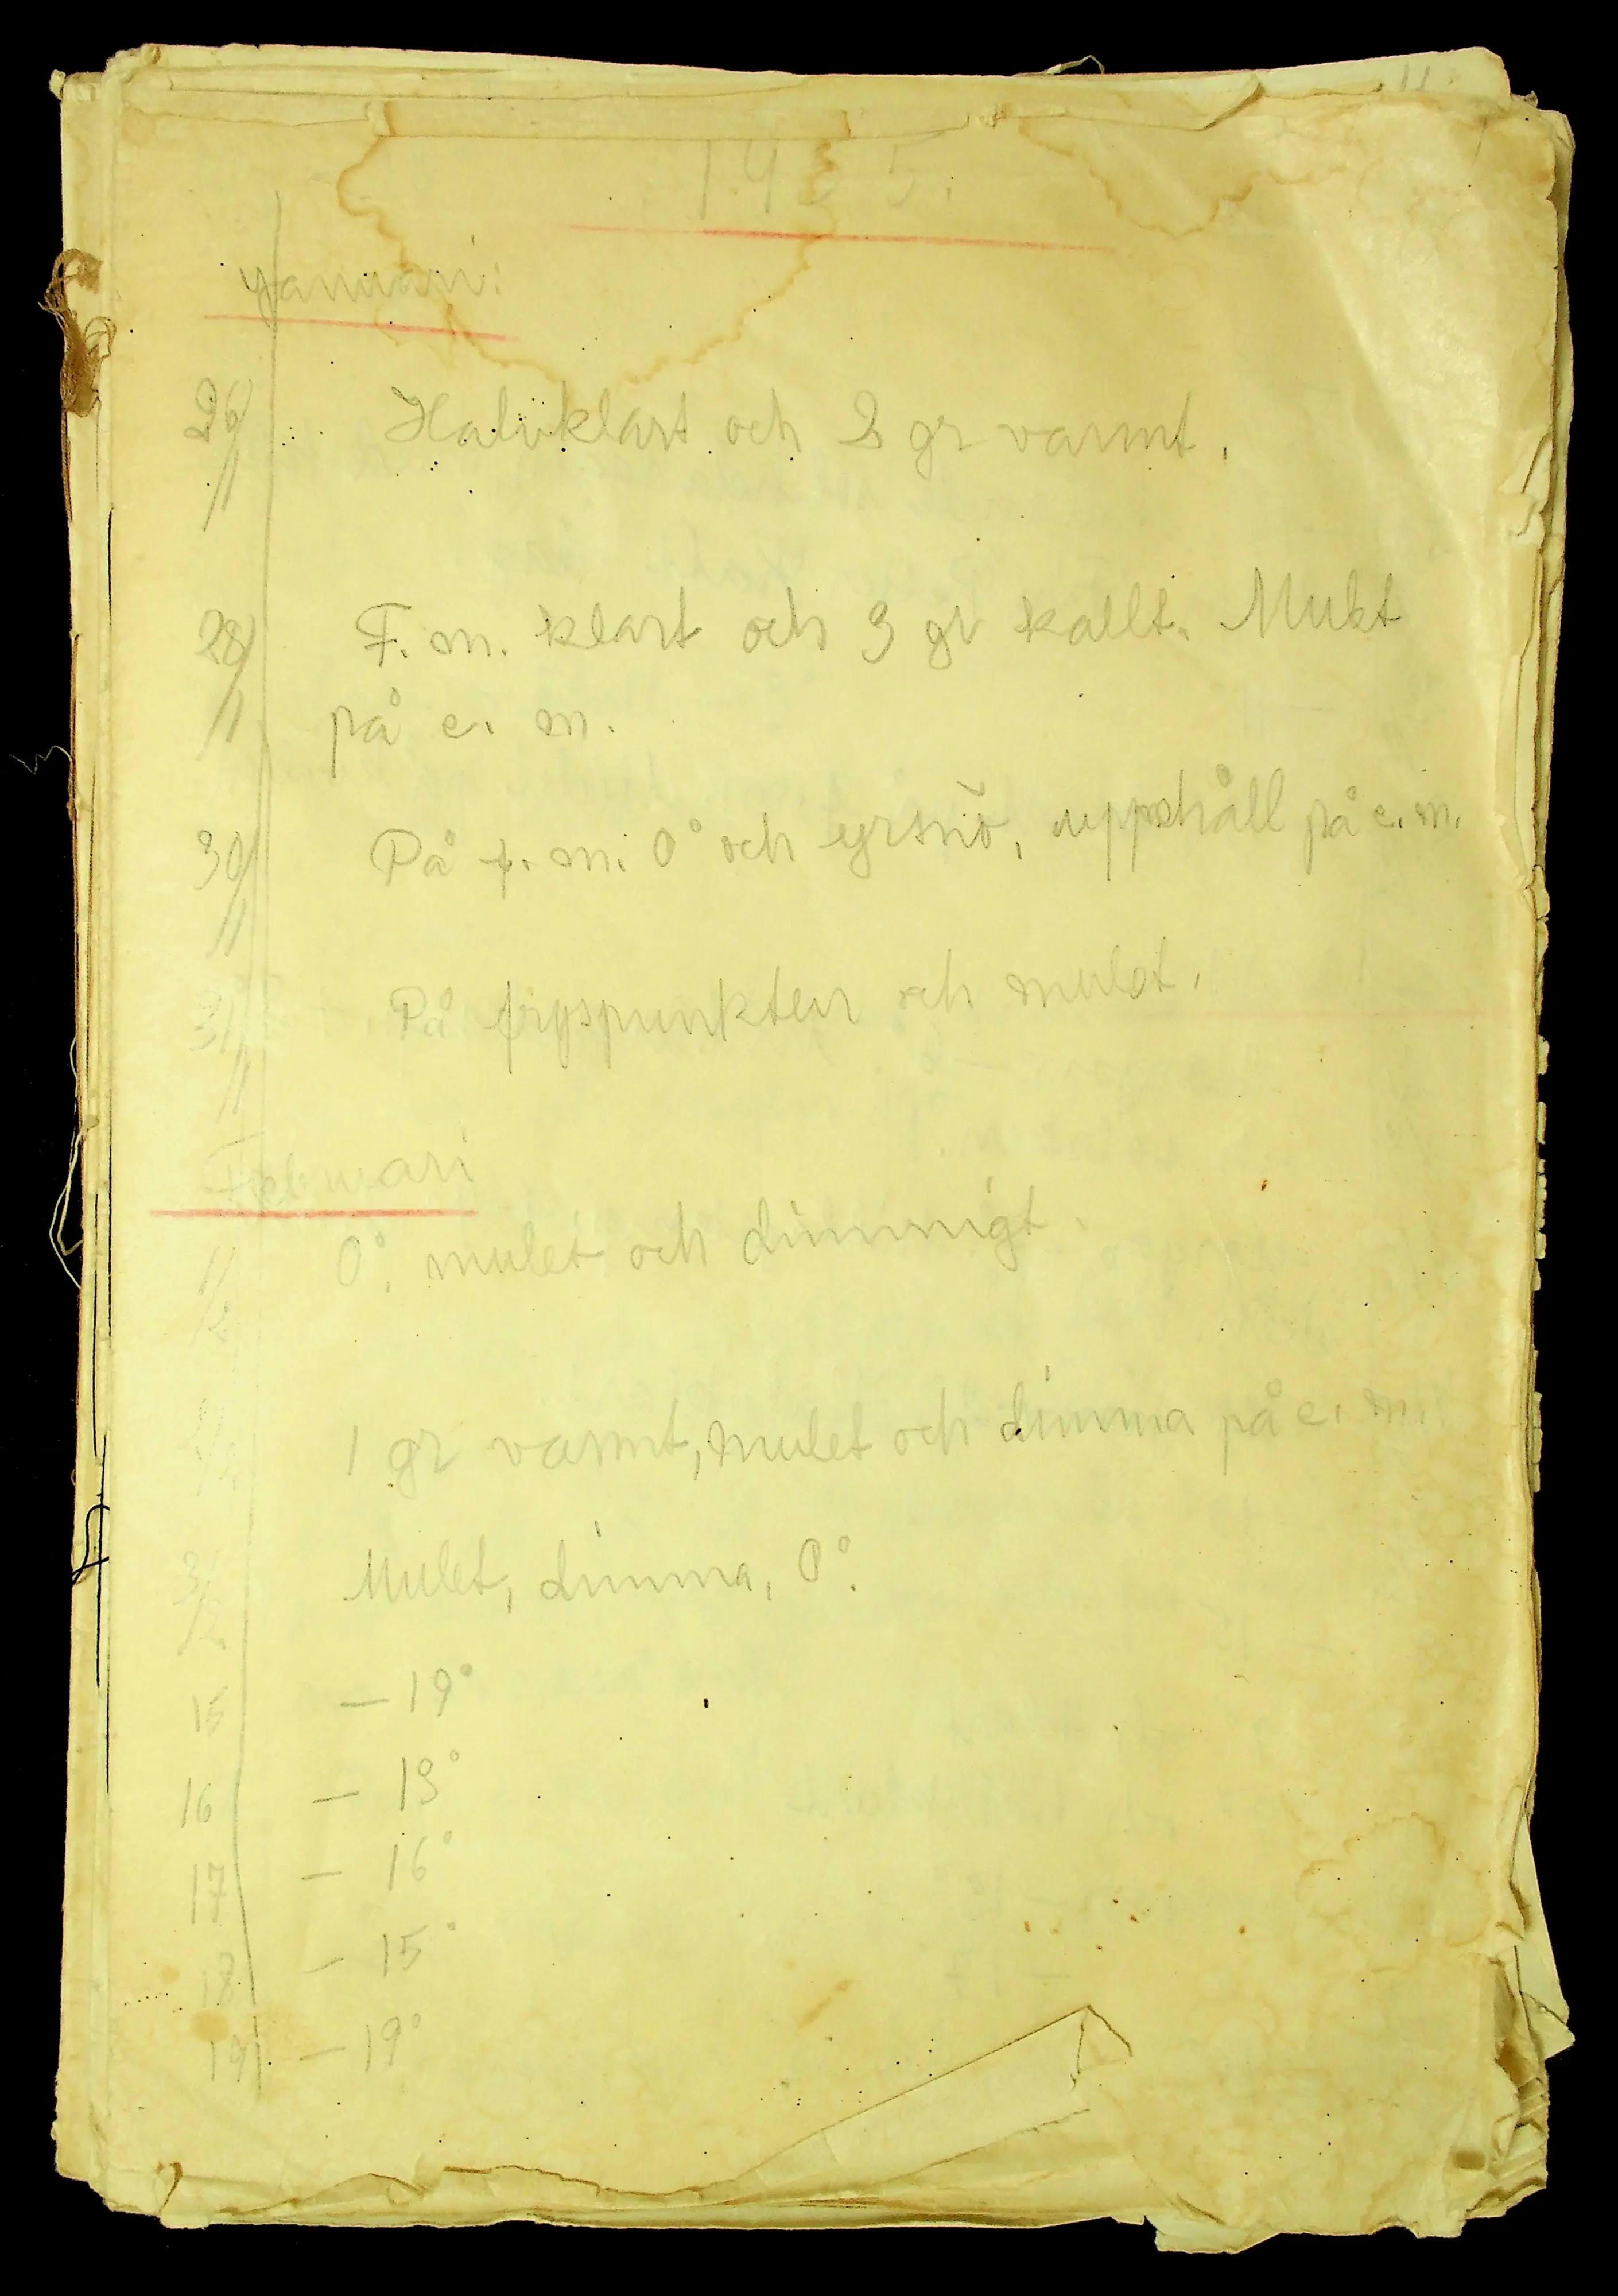 1935.
Januari:
26/1 Halvklart och 2 gr varmt.
28/1 F. m. klart och 3 gr kallt. Mulet
på e. m.
30/1 På f. m. 0° och yrsnö, uppehåll på e. m.
31/1 På fryspunkten och mulet.
Februari
1/2 0°. mulet och dimmigt.
2/2 1 gr varmt, mulet och dimma på e. m.
3/2 Mulet, dimma, 0°.
15 — 19°
16 — 13°
17 — 16°
18 — 15°
19 — 19°